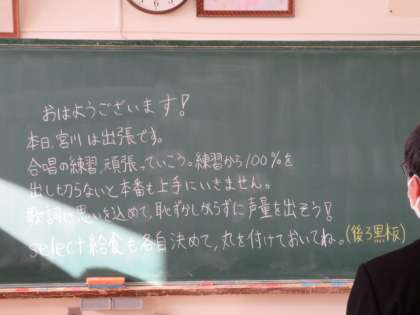 おはようございます!
本日、宮川は出張です。
合唱の練習、頑張っていこう。練習から100%を
出し切らないと本番も上手にいきません。
歌詞に思いを込めて、恥ずかしがらずに声量を出そう!
select給食も各自決めて、丸を付けておいてね。(後ろ黒板)